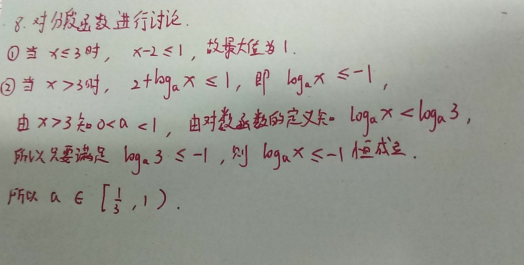 8. 对分段函数进行讨论.
① 当 x≤3时, x-2≤1, 故最大值为1.
② 当 x>3时, 2+logₐx≤1, 即 logₐx≤-1,
由x>3知0<a<1, 由对数函数的定义知 logₐx<logₐ3,
所以只要满足 logₐ3≤-1, 则 logₐx≤-1 恒成立.
所以 a∈[1/3, 1).